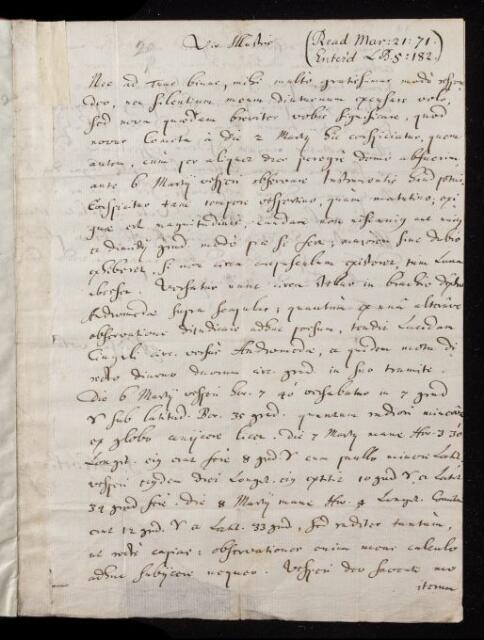 Vir Illustris
(Read Mar: 21: 71.
Enter'd L B: 5: 182.)
Nec ad Tuas binas, mihi multo gratissimas modo
deo, nec silentium meum diuturnum excusare volo,
sed nova quædam breviter vobis significare, quod
novus Cometa à die 2 Martij hic conspiciatur, quem
autem, cum per aliquot dies peregre domo abfuerim,
ante 6 Martij vesperi observare Instrumentis haud potui.
Conspicitur tam tempore vespertino, quàm matutino,
guæ est magnitudinis, caudam non
grad modo præ se fert, majorem sine dubio
exhiberet, si non circa crepusculum existeret, tum Luna
abesset. Versatur nunc circa in brachio dextro
Andromedæ supra
observatione adhuc possum, tendit Lucidam
Cinguli versus Andromedæ, a quidem motu
diurno duorum circ. grad in suo tramite.
Die 6 Martij vesperi hor. 7 40 versabatur in 7 grad
♈ sub latitud. Bor. 35 grad. quantum
ex globo conijcere licet. die 7 Martij mane Hor. 3 30
Longit. eius erat ferè 8 grad ♈ cum paullo minore Latit.
vesperi eiusdem diei Longit. eius extitit 10 grad ♈ et Latit.
34 grad ferè. die 8 Martij mane Hor. 4 Longit. Cometæ
erat 12 grad. ♈ et Latit. 33 grad, sed ruditer tantùm,
observationes enim meas calculo
adhuc subijcere nequeo. Vesperi deo favente
iterum